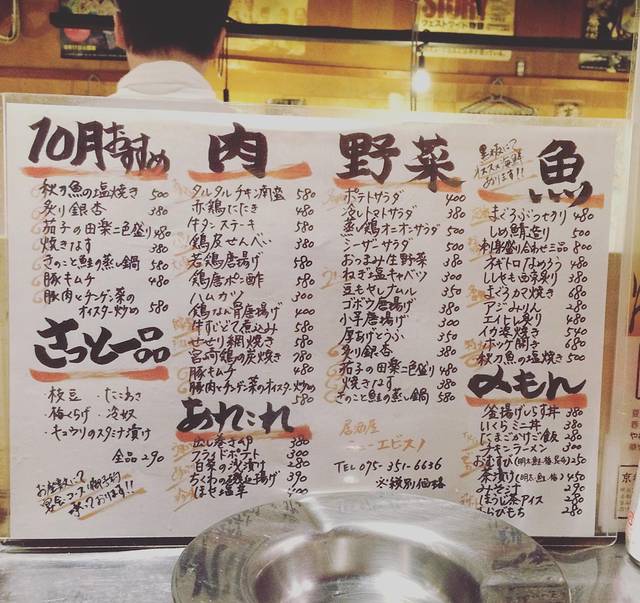 10月おすすめ
秋刀魚の塩焼き 500
炙り銀杏 380
茄子の田楽二色盛り 480
焼きなす 380
きのこと鮭の蒸し鍋 580
豚キムチ 480
豚肉とチンゲン菜の
オイスター炒め 580
さっと一品
・枝豆 ・たこわさ
・梅くらげ ・冷奴
・キュウリのスタミナ漬け
全品290
お座敷にて
宴会コース御予約
承っております!!
肉
タルタルチキン南蛮 580
赤鶏たたき 480
牛タンステーキ 580
鶏皮せんべい 380
若鶏唐揚げ 580
鶏唐ポン酢 580
ハムカツ 300
鶏なんこつ唐揚げ 400
牛すじどて煮込み 580
せせり網焼き 580
宮崎鶏の炭焼き 780
豚キムチ 480
豚肉とチンゲン菜のオイスター炒め 580
あれこれ
だし巻き玉子 380
フライドポテト 300
白菜の浅漬け 280
ちくわの磯辺揚げ 390
野菜
ポテトサラダ 400
冷しトマトサラダ 380
蒸し鶏オニオンサラダ 500
シーザーサラダ 500
おつまみ生野菜 380
ねぎま塩キャベツ 300
豆もやしナムル 350
ゴボウ唐揚げ 380
小芋唐揚げ 300
厚あげどうふ 350
炙り銀杏 380
茄子の田楽二色盛り 480
焼きなす 380
きのこと鮭の蒸し鍋 580
居酒屋
エビス
TEL 075-351-6636
※税別価格
黒板にて
オススメ海鮮
あります!!
魚
まぐろぶつ切り 480
しめ鯖造り 500
刺身盛り合わせ三品 800
ネギトロなめろう 480
ししゃも西京炙り 380
まぐろカマ焼き 680
アジみりん 280
エイヒレ炙り 480
イカ姿焼き 540
ホッケ開き 680
秋刀魚の塩焼き 500
〆もん
釜揚げしらす丼 380
いくらミニ丼 380
たまごかけご飯 280
チキンラーメン 300
おむすび(明太・鮭・梅・昆布) 250
茶漬け(明太・鮭・梅) 450
みそ汁 290
ほうじ茶アイス 280
わらびもち 280